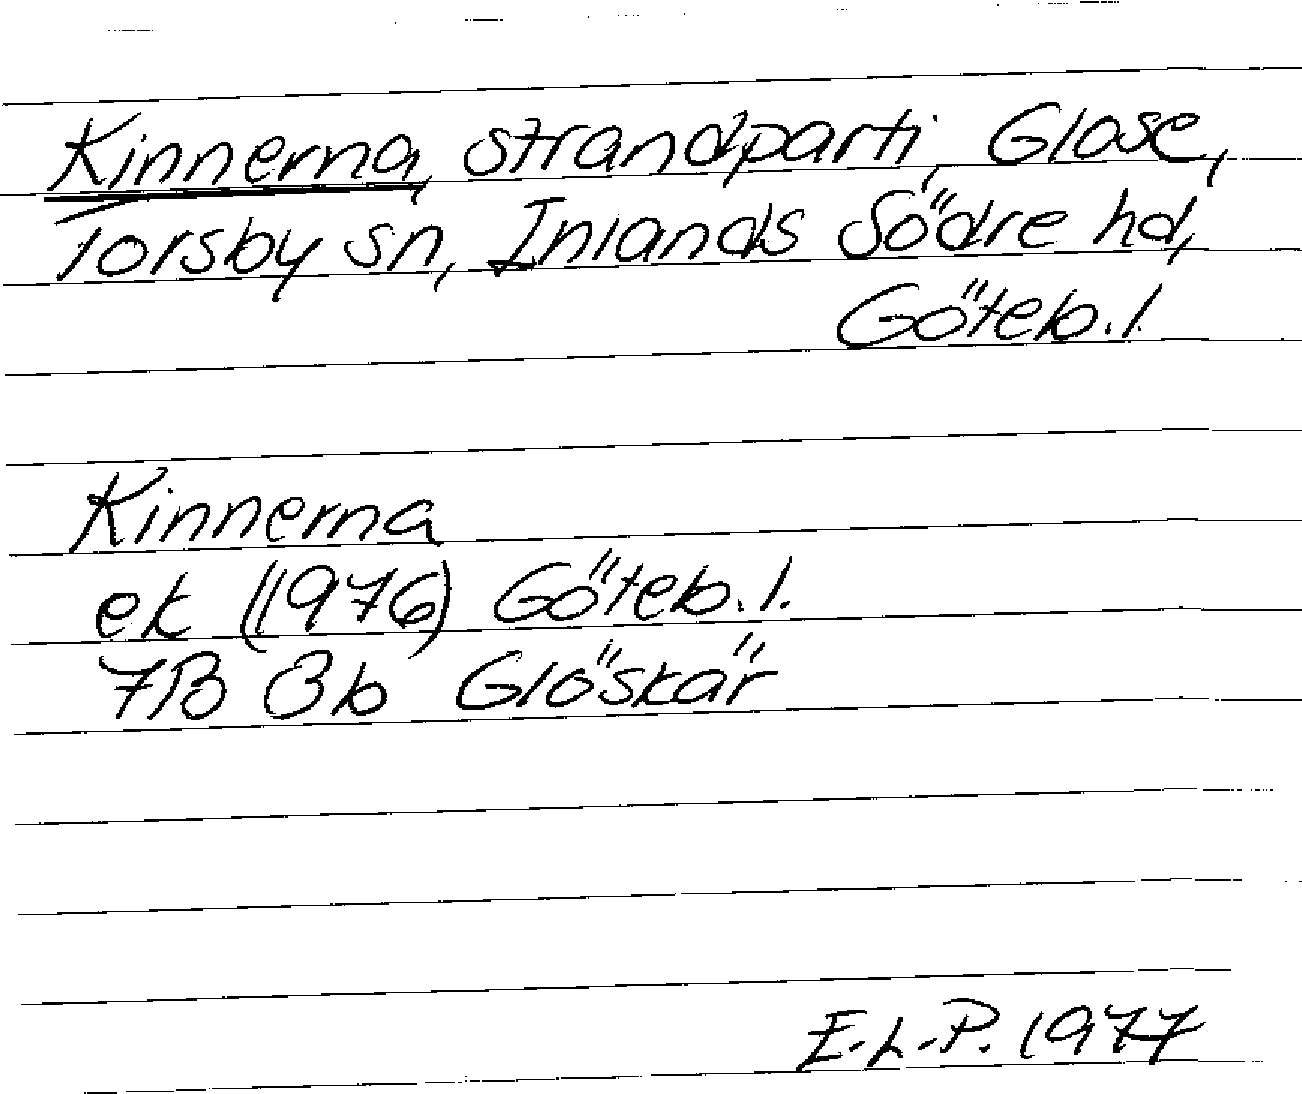 Kinnerna, strandparti, Glose,
Torsby sn, Inlands Södre hd,
Göteb.l.
Kinnerna
ek (1976) Göteb.l.
7B 3b Glöskär
E.L.P. 1977